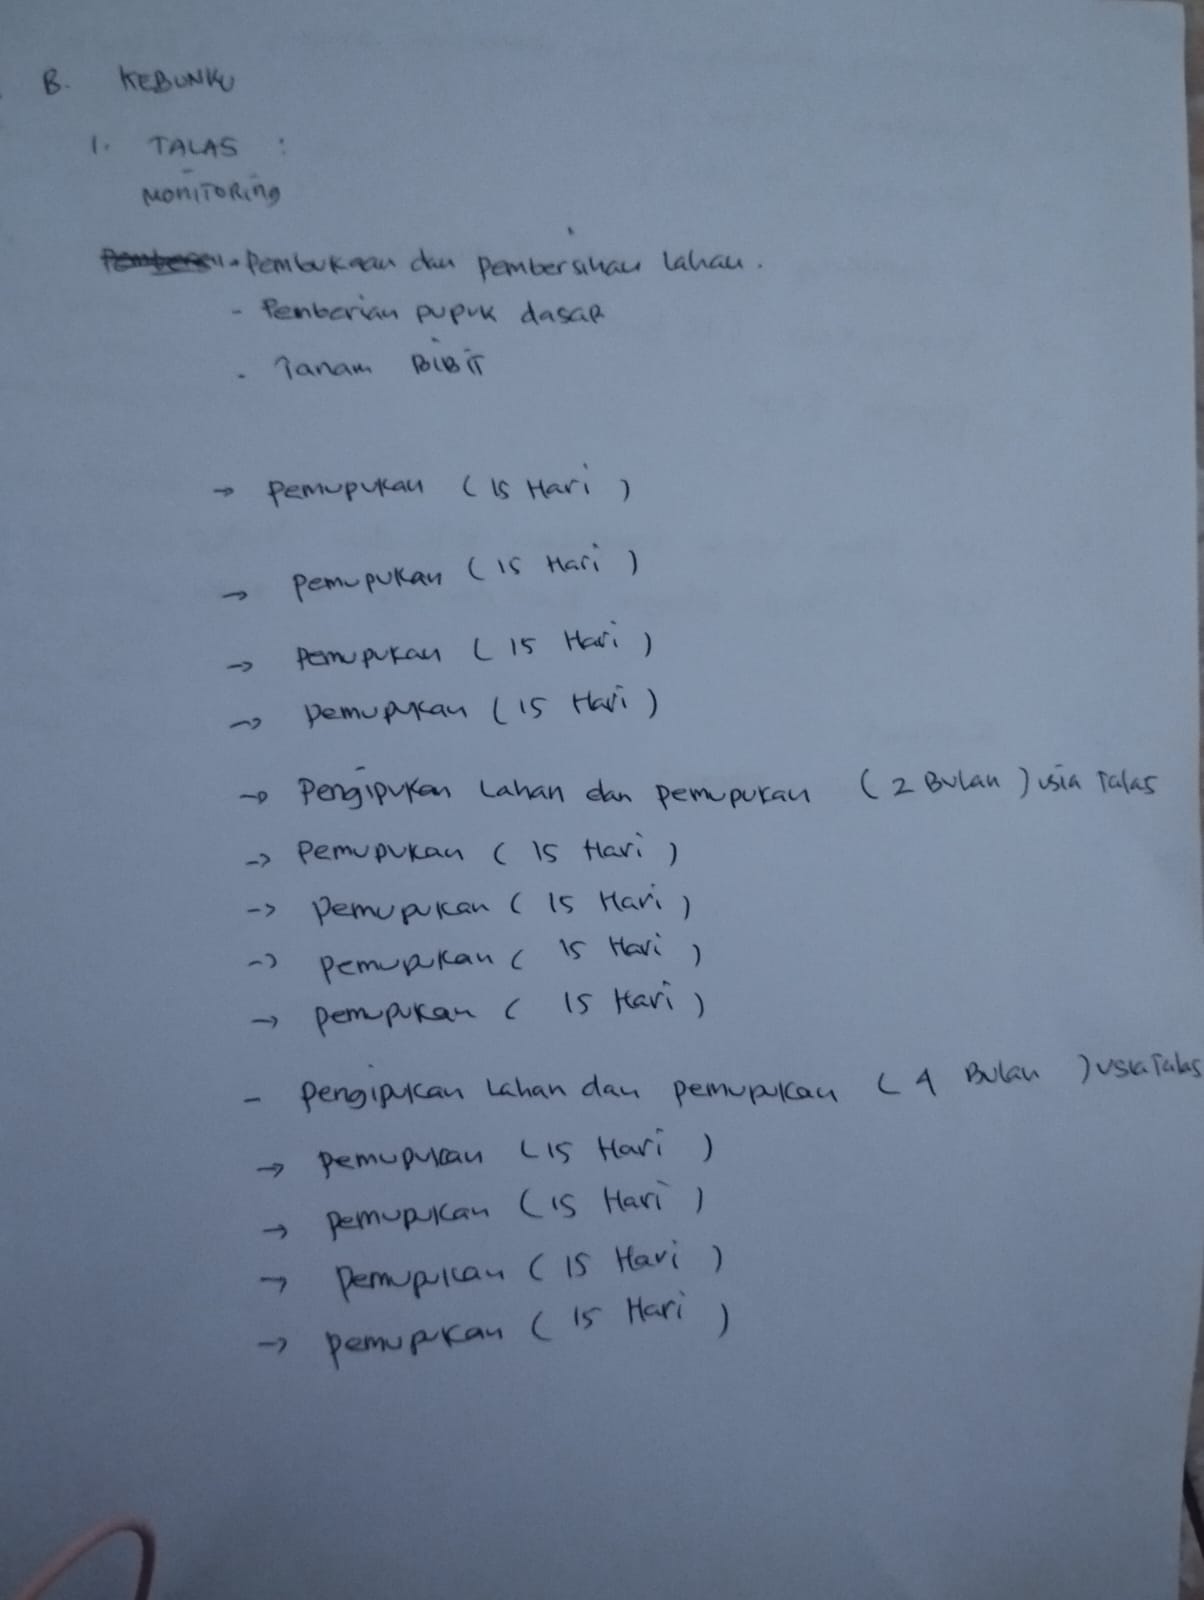 B. KEBUNKU
1. TALAS :
MONITORing
- Pembukaan dan Pembersihan Lahan.
- Pemberian pupuk dasar
- Tanam BiBiT
→ Pemupukan (15 Hari)
→ Pemupukan (15 Hari)
→ Pemupukan (15 Hari)
→ Pemupukan (15 Hari)
→ Pengipukan Lahan dan pemupukan (2 Bulan) usia Talas
→ Pemupukan (15 Hari)
→ Pemupukan (15 Hari)
→ Pemupukan (15 Hari)
→ Pemupukan (15 Hari)
- Pengipukan Lahan dan pemupukan (4 Bulan) usia Talas
→ Pemupukan (15 Hari)
→ Pemupukan (15 Hari)
→ Pemupukan (15 Hari)
→ Pemupukan (15 Hari)